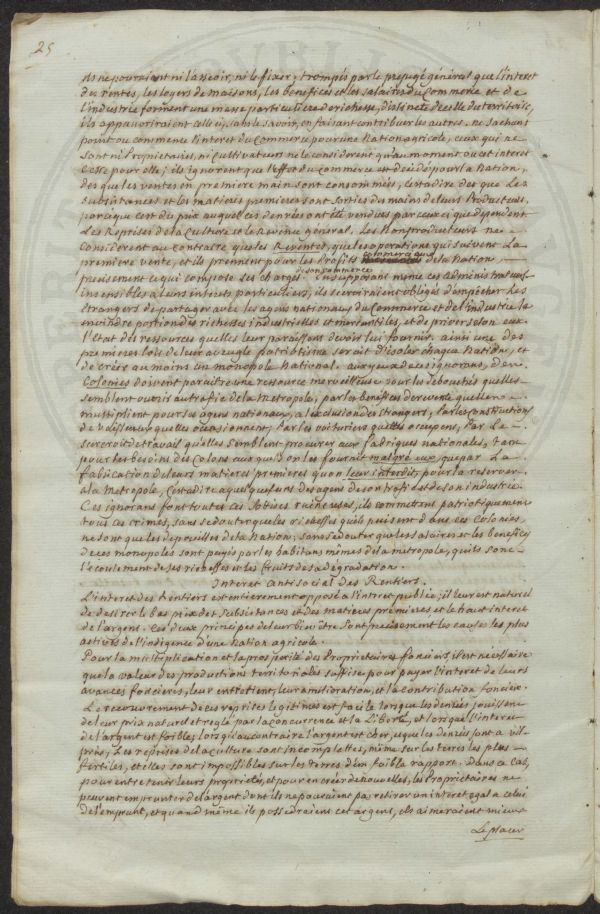 25
ils ne pourraient ni l'asseoir, ni le fixer; trompés par le préjugé général que l'interet
des rentes, les loyers de maisons, les benefices et les salaires du Commerce et de
l'industrie forment une masse particuliere de richesse, distincte de celle du territoire,
ils appauvriraient celle cy, sans le savoir, en faisant contribuer les autres. ne sachant
point ou commence l'interet du Commerce pour une Nation agricole, ceux qui ne
sont ni Proprietaires, ni Cultivateurs ne le considerent qu'au moment ou cet interet
Cesse pour elle; ils ignorent que l'effet du Commerce est decidé pour la Nation,
des que les ventes en premiere main sont consommées, c'estadire des que les
subsistances et les matieres premieres sont sorties des mains de leurs Producteurs,
parceque c'est du prix auquel ces denrées ont été vendues par ceux ci que dependent
Les Reprises de la Culture et le Revenu général. Les Nonproducteurs ne
Considerent au Contraire que les Reventes, que les operations qui suivent La
premiere vente, et ils prennent pour les Profits commerciaux de la Nation
precisement ce qui compose ses charges de son commerce. En supposant même ces administrateurs
insensibles a leurs interets particuliers, ils se croiraient obligés d'empêcher les
Etrangers de partager avec les agens nationaux du Commerce et de l'industrie la
moindre portion des richesses industrielles et mercantiles, et de priver selon eux
l'Etat des ressources qu'elles leur paraissent devoir lui fournir. ainsi une des
premieres lois de leur aveugle patriotisme serait d'isoler chaque Nation, et
de créer au moins un monopole National. aux yeux de ces ignorans, des
Colonies doivent paraître une ressource merveilleuse pour les debouchés qu'elles
semblent ouvrir au trafic de la Metropole, par les benefices de revente qu'elles
multiplient pour ses agens nationaux, a l'exclusion des Etrangers, par les constructions
de Vaisseaux qu'elles occasionnent, par les voituriers qu'elles occupent, par Le
surcroit de travail qu'elles semblent procurer aux fabriques nationales, tant
pour les besoins des Colons aux quels on les fournit malgré eux, que par La
fabrication de leurs matieres premieres qu'on leur interdit, pour la reserver
a la Metropole, C'estadire a quelques uns des agens de son trafic et de son industrie.
Ces ignorans font toutes ces sotises ruineuses, ils commettent patriotiquement
tous ces crimes, sans se douter que les richesses qu'ils puisent dans ces Colonies,
ne sont que les depouilles de la Nation; sans se douter que les salaires et les benefices
de ces monopoles sont payés par les habitans mêmes de la metropole, qu'ils sont
l'ecoulement de ses richesses et les fruits de sa degradation.
Interet antisocial des Rentiers.
L'interet des Rentiers est entierement opposé a l'interet public; il leur est naturel
de desirer le bas prix des Subsistances et des matieres premieres et le haut interet
de l'argent. Ces deux principes de leur bien être sont precisement les causes les plus
actives de l'indigence d'une Nation agricole.
Pour la multiplication et la prosperité des Proprietaires fonciers, il est necessaire
que la valeur des productions territoriales suffise pour payer l'interet de leurs
avances foncieres, leur entretient, leur amilioration, et la contribution fonciere.
Le recouvrement de ces reprises legitimes est facile lorsque les denrées jouissent
de leur prix naturel et reglé par la concurrence et la Liberté, et lorsque l'interet
de l'argent est faible; lorsqu'au contraire l'argent est cher, et que les denrées sont a vil
prix; Les reprises de la culture sont incomplettes, même sur les terres les plus
fertiles, et elles sont impossibles sur les terres d'un faible rapport. Dans ce Cas,
pour entretenir leurs proprietés, et pour en créer de nouvelles, les Proprietaires ne
peuvent emprunter de l'argent dont ils ne pouraient pas retirer un interet egal a celui
de l'emprunt, et quand même ils possederaient cet argent, ils aimeraient mieux
Le placer